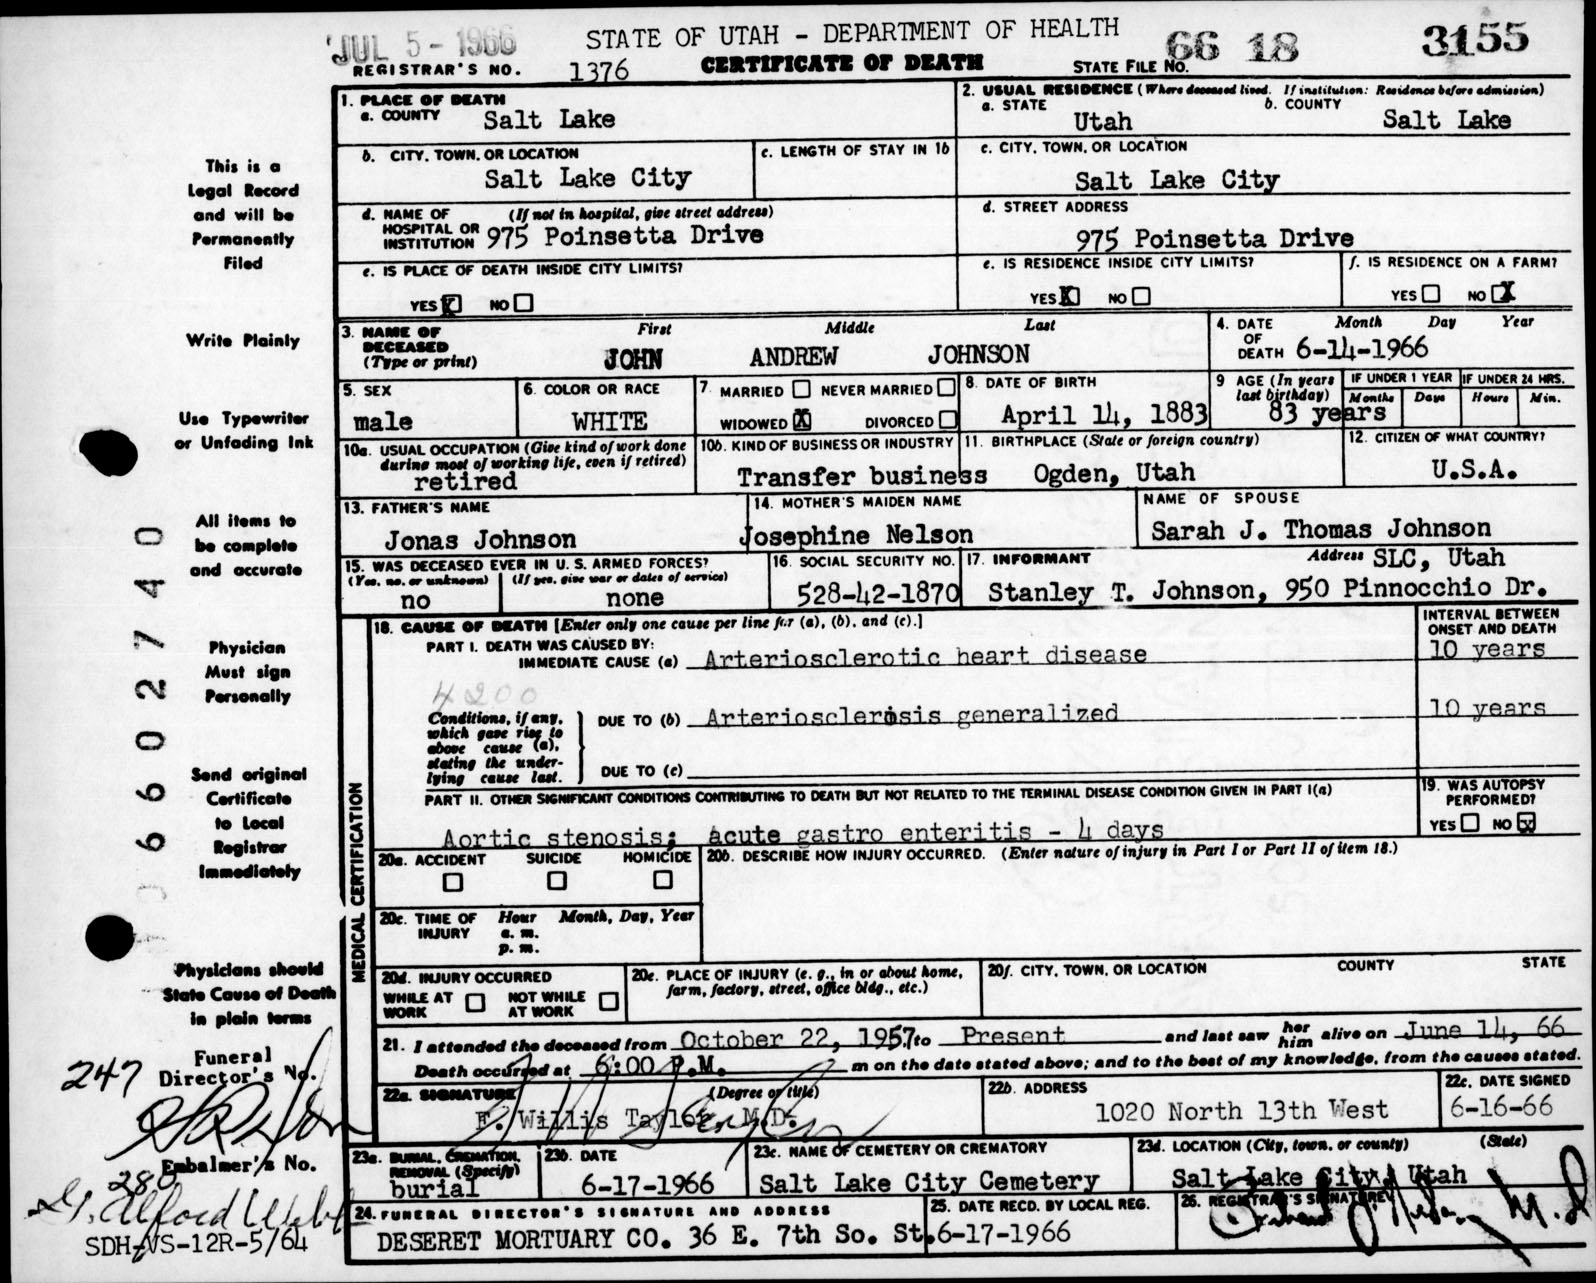 JUL 5 - 1966
STATE OF UTAH - DEPARTMENT OF HEALTH
CERTIFICATE OF DEATH
REGISTRAR'S NO. 1376
STATE FILE NO. 66 18 3155
1. PLACE OF DEATH
a. COUNTY Salt Lake
2. USUAL RESIDENCE (Where deceased lived. If institution: Residence before admission)
a. STATE Utah
b. COUNTY Salt Lake
b. CITY, TOWN, OR LOCATION Salt Lake City
c. LENGTH OF STAY IN 1b
c. CITY, TOWN, OR LOCATION Salt Lake City
d. NAME OF HOSPITAL OR INSTITUTION (If not in hospital, give street address) 975 Poinsetta Drive
d. STREET ADDRESS 975 Poinsetta Drive
e. IS PLACE OF DEATH INSIDE CITY LIMITS?
YES X NO
e. IS RESIDENCE INSIDE CITY LIMITS?
YES X NO
f. IS RESIDENCE ON A FARM?
YES NO X
3. NAME OF DECEASED (Type or print)
First Middle Last
JOHN ANDREW JOHNSON
4. DATE OF DEATH
Month Day Year
6-14-1966
5. SEX male
6. COLOR OR RACE WHITE
7. MARRIED NEVER MARRIED
WIDOWED X DIVORCED
8. DATE OF BIRTH April 14, 1883
9 AGE (In years last birthday) 83 years
IF UNDER 1 YEAR Months Days
IF UNDER 24 HRS. Hours Min.
10a. USUAL OCCUPATION (Give kind of work done during most of working life, even if retired) retired
10b. KIND OF BUSINESS OR INDUSTRY Transfer business
11. BIRTHPLACE (State or foreign country) Ogden, Utah
12. CITIZEN OF WHAT COUNTRY? U.S.A.
13. FATHER'S NAME Jonas Johnson
14. MOTHER'S MAIDEN NAME Josephine Nelson
NAME OF SPOUSE Sarah J. Thomas Johnson
15. WAS DECEASED EVER IN U. S. ARMED FORCES?
(Yes, no, or unknown) no
(If yes, give war or dates of service) none
16. SOCIAL SECURITY NO. 528-42-1870
17. INFORMANT Address SLC, Utah
Stanley T. Johnson, 950 Pinnocchio Dr.
MEDICAL CERTIFICATION
18. CAUSE OF DEATH [Enter only one cause per line for (a), (b), and (c).]
INTERVAL BETWEEN ONSET AND DEATH
PART I. DEATH WAS CAUSED BY:
IMMEDIATE CAUSE (a) Arteriosclerotic heart disease 10 years
4200
Conditions, if any, which gave rise to above cause (a), stating the underlying cause last.
DUE TO (b) Arteriosclerosis generalized 10 years
DUE TO (c)
PART II. OTHER SIGNIFICANT CONDITIONS CONTRIBUTING TO DEATH BUT NOT RELATED TO THE TERMINAL DISEASE CONDITION GIVEN IN PART I(a)
Aortic stenosis; acute gastro enteritis - 4 days
19. WAS AUTOPSY PERFORMED?
YES NO X
20a. ACCIDENT SUICIDE HOMICIDE
20b. DESCRIBE HOW INJURY OCCURRED. (Enter nature of injury in Part I or Part II of item 18.)
20c. TIME OF INJURY Hour Month, Day, Year
a. m.
p. m.
20d. INJURY OCCURRED
WHILE AT WORK NOT WHILE AT WORK
20e. PLACE OF INJURY (e. g., in or about home, farm, factory, street, office bldg., etc.)
20f. CITY, TOWN, OR LOCATION COUNTY STATE
21. I attended the deceased from October 22, 1957 to Present and last saw her him alive on June 14, 66
Death occurred at 6:00 P.M. m on the date stated above; and to the best of my knowledge, from the causes stated.
22a. SIGNATURE (Degree or title)
F. Willis Taylor, M.D.
22b. ADDRESS 1020 North 13th West
22c. DATE SIGNED 6-16-66
23a. BURIAL, CREMATION, REMOVAL (Specify) burial
23b. DATE 6-17-1966
23c. NAME OF CEMETERY OR CREMATORY Salt Lake City Cemetery
23d. LOCATION (City, town, or county) (State)
Salt Lake City, Utah
24. FUNERAL DIRECTOR'S SIGNATURE AND ADDRESS
DESERET MORTUARY CO. 36 E. 7th So. St.
25. DATE RECD. BY LOCAL REG. 6-17-1966
26. REGISTRAR'S SIGNATURE
M.D
This is a
Legal Record
and will be
Permanently
Filed
Write Plainly
Use Typewriter
or Unfading Ink
All items to
be complete
and accurate
Physician
Must sign
Personally
Send original
Certificate
to Local
Registrar
Immediately
Physicians should
State Cause of Death
in plain terms
Funeral
Director's No.
247
Embalmer's No.
280
SDH-VS-12R-5/64
06602740